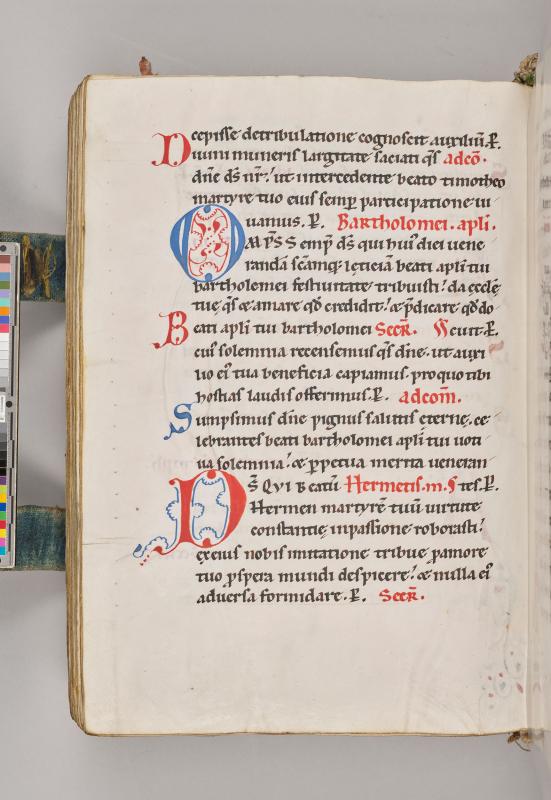 cepisse detribulatione cognoscat auxiliū. P̄.
Diuini muneris largitate saciati q̄s adcō.
dn̄e d̄s nr̄. ut intercedente beato timotheo
martyre tuo eius semp̄ participatione ui
uamus. P̄. Bartholomei. apli.
OMP̄S Semp̄ d̄s qui hui' diei uene
randā scāmq; lęticiā beati apl̄i tui
bartholomei festiuitate tribuisti. da ęcclę
tuę q̄s & amare qd̄ credidit. & p̄dicare qd̄ do
Beati apl̄i tui bartholomei Secr̄. cuit. P̄.
cui' solemnia recensemus q̄s dn̄e. ut auxi
lio ei' tua beneficia capiamus. pro quo tibi
hostias laudis offerimus. P̄. adcom̄.
Sumpsimus dn̄e pignus salutis eterne. ce
lebrantes beati bartholomei apl̄i tui uoti
ua solemnia. & p̄petua merita ueneran
D̄S QVI Beatū Hermetis. m. tes. P̄.
Hermen martyrē tuū uirtute
constantię inpassione roborasti.
ęxeius nobis imitatione tribue p̄amore
tuo p̄spera mundi despicere. & nulla ei'
aduersa formidare. P̄. Secr̄.